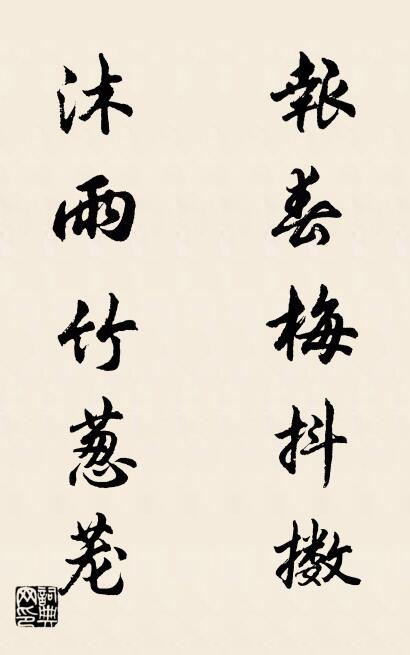 報春梅抖擻
沐雨竹葱茏
詞典
网印